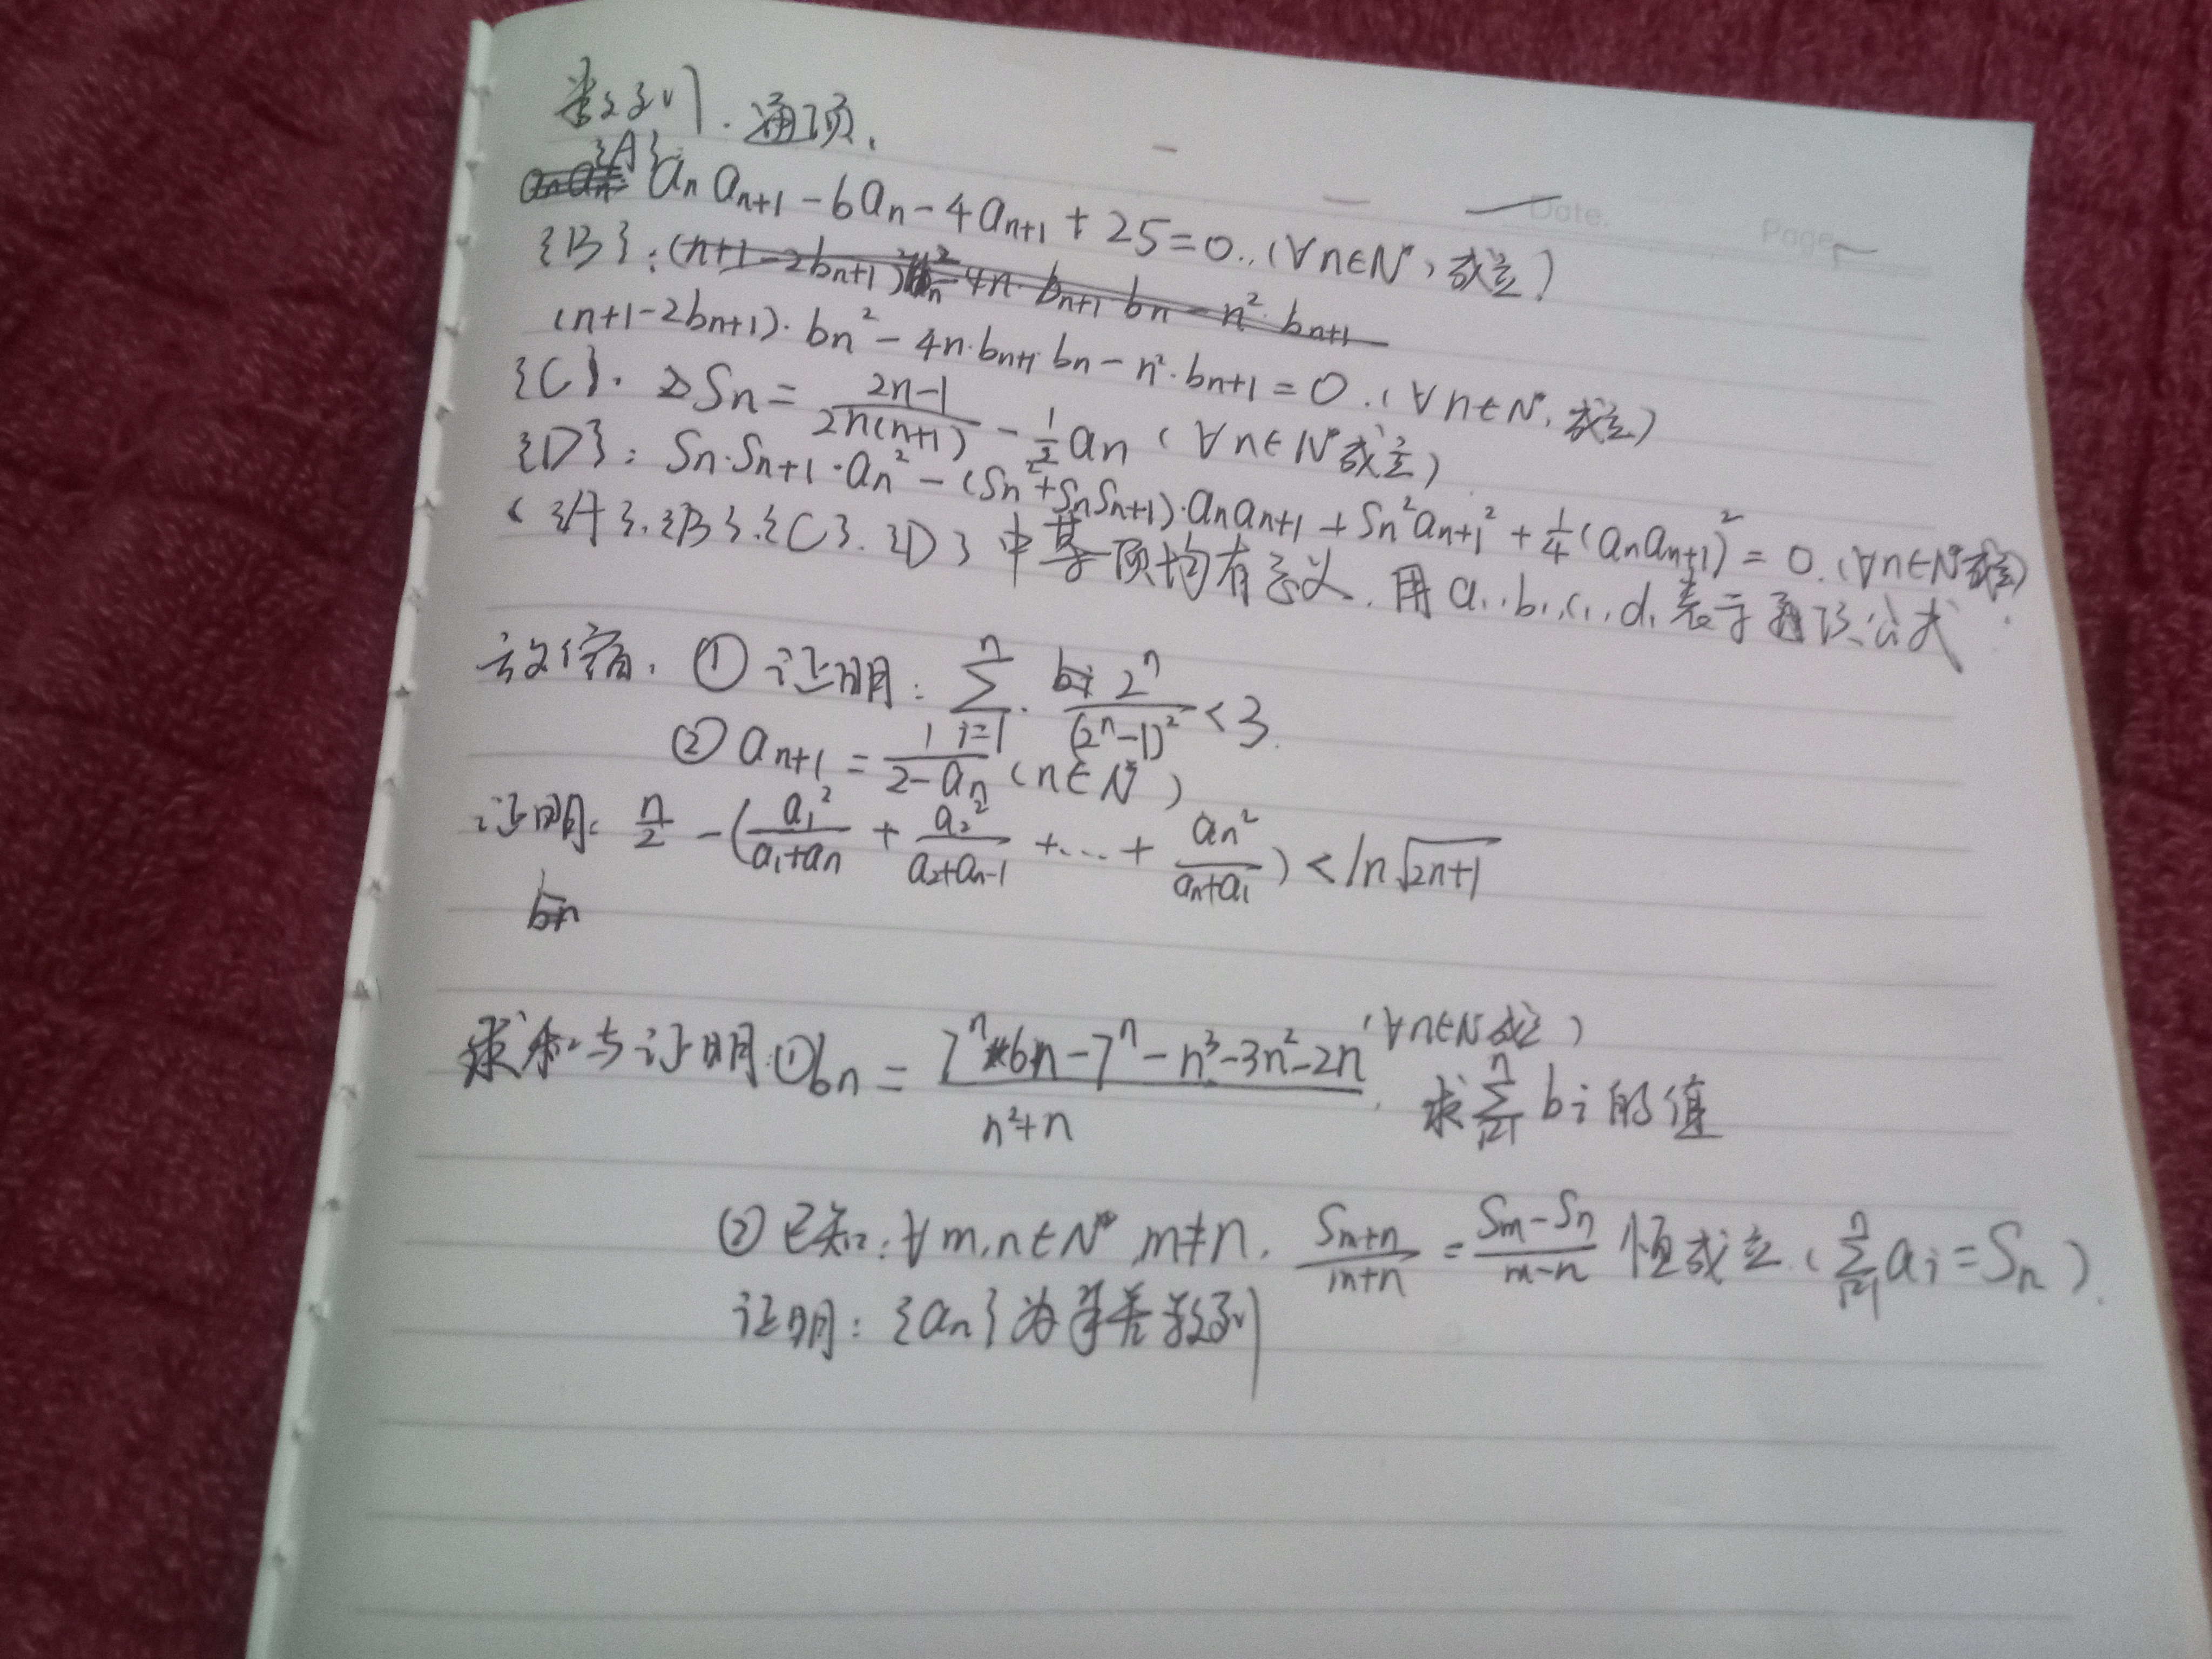 数列.通项.
{A}: aₙaₙ₊₁-6aₙ-4aₙ₊₁+25=0.,(∀n∈N*,成立)
Date. Page
{B}:(n+1-2bₙ₊₁)bₙ²-4n·bₙ₊₁bₙ-n²·bₙ₊₁
(n+1-2bₙ₊₁)·bₙ²-4n·bₙ₊₁bₙ-n²·bₙ₊₁=0.(∀n∈N*,成立)
{C}. Sₙ=(2n-1)/(2n(n+1))-1/2aₙ(∀n∈N*成立)
{D}: Sₙ·Sₙ₊₁·aₙ²-(Sₙ²+SₙSₙ₊₁)·aₙaₙ₊₁+Sₙ²aₙ₊₁²+1/4(aₙaₙ₊₁)²=0.(∀n∈N*成立)
({A}.{B}.{C}.{D}中每一项均有意义.用a₁.b₁.c₁.d₁表示通项公式.
放缩.①证明:∑ⁿᵢ₌₁ 2ⁿ/(2ⁿ-1)²<3.
②aₙ₊₁=1/(2-aₙ)(n∈N*)
证明:n/2-(a₁²/(a₁+aₙ)+a₂²/(a₂+aₙ₋₁)+...+aₙ²/(aₙ+a₁))<ln√(2n+1)
bₙ
求和与证明①bₙ=(7ⁿ·6n-7ⁿ-n³-3n²-2n)/(n²+n).(∀n∈N*成立) 求∑ⁿᵢ₌₁bᵢ的值
②已知:∀m,n∈N*,m≠n,Sₘ₊ₙ/(m+n)=(Sₘ-Sₙ)/(m-n)恒成立.(∑ⁿᵢ₌₁aᵢ=Sₙ).
证明:{aₙ}为等差数列